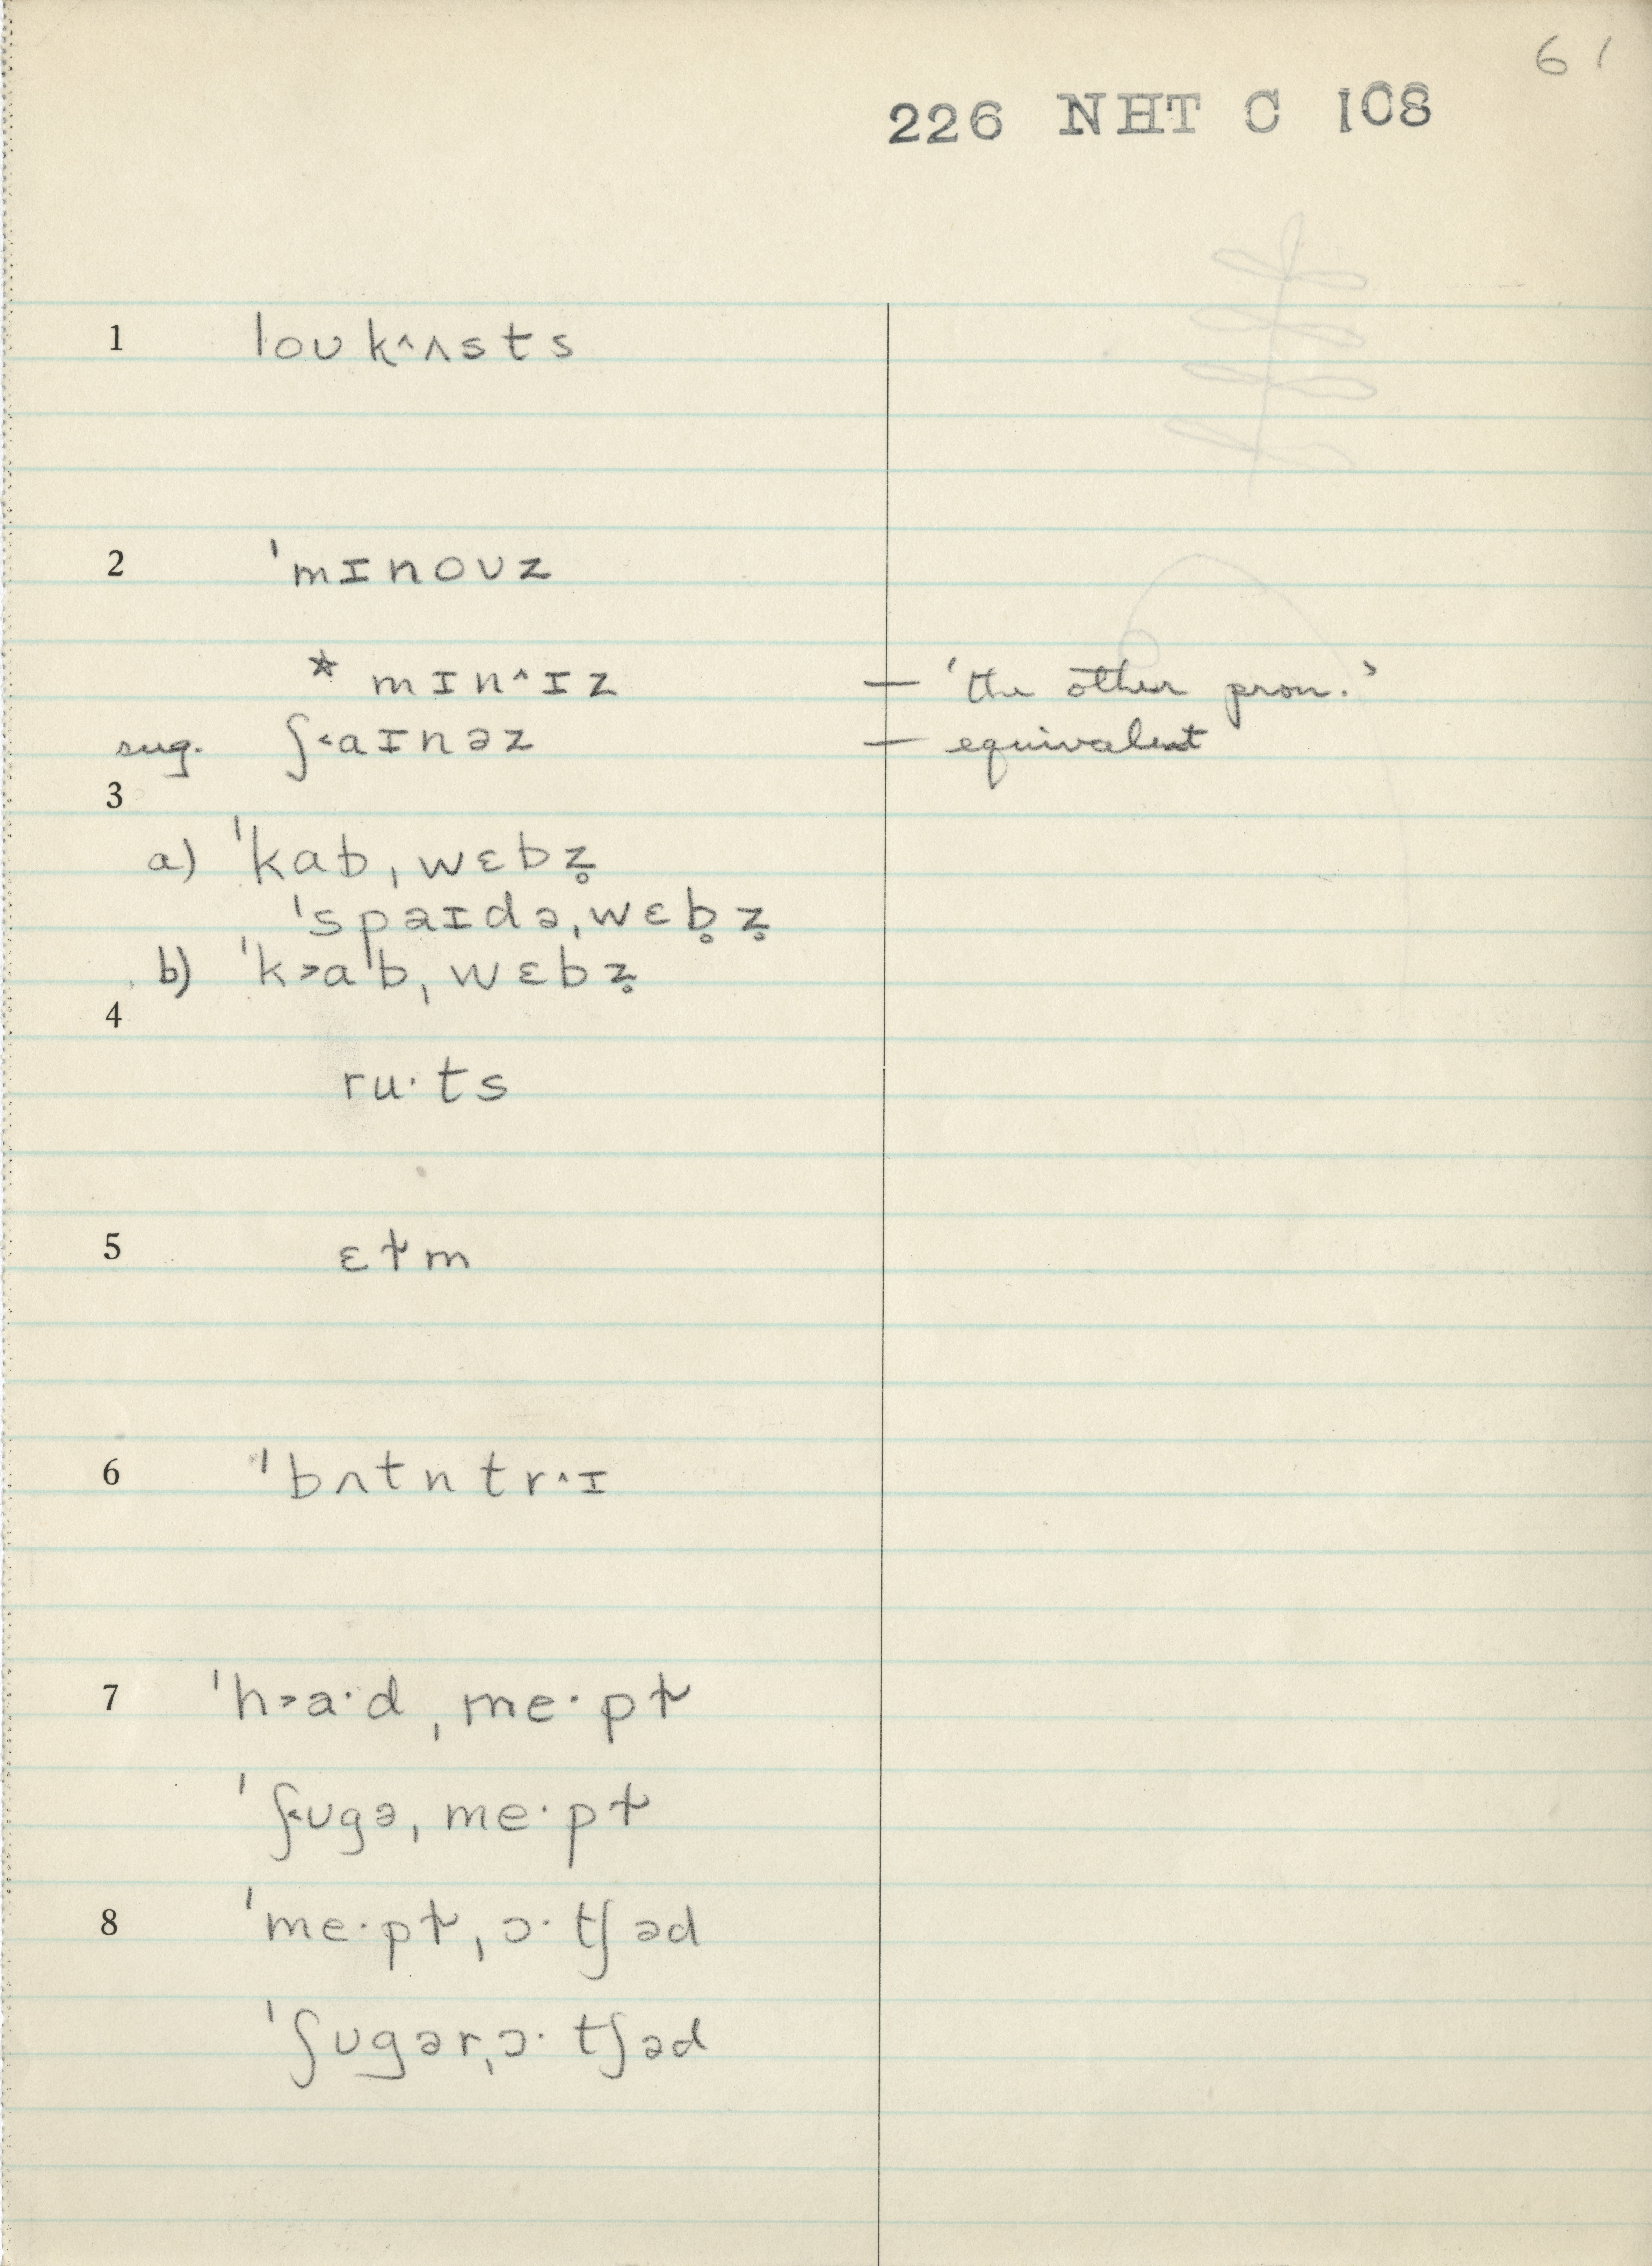 61
226 NHT C 108
1 loʊ k^ʌsts
2 ˈmɪnoʊz
* mɪn^ɪz — 'the other pron.'
sug. ʃ˂aɪnəz — equivalent
3
a) ˈkabˌwɛbz̥
ˈspaɪdəˌwɛb̥z̥
b) ˈk˃aˈbˌwɛbz̥
4
ru·ts
5 ɛɫm
6 ˈbʌtntr^ɪ
7 ˈh˃a·dˌme·pɫ
ˈʃ˂ʊgəˌme·pɫ
8 ˈme·pɫˌɔ·tʃəd
ˈʃʊgərˌɔ·tʃəd